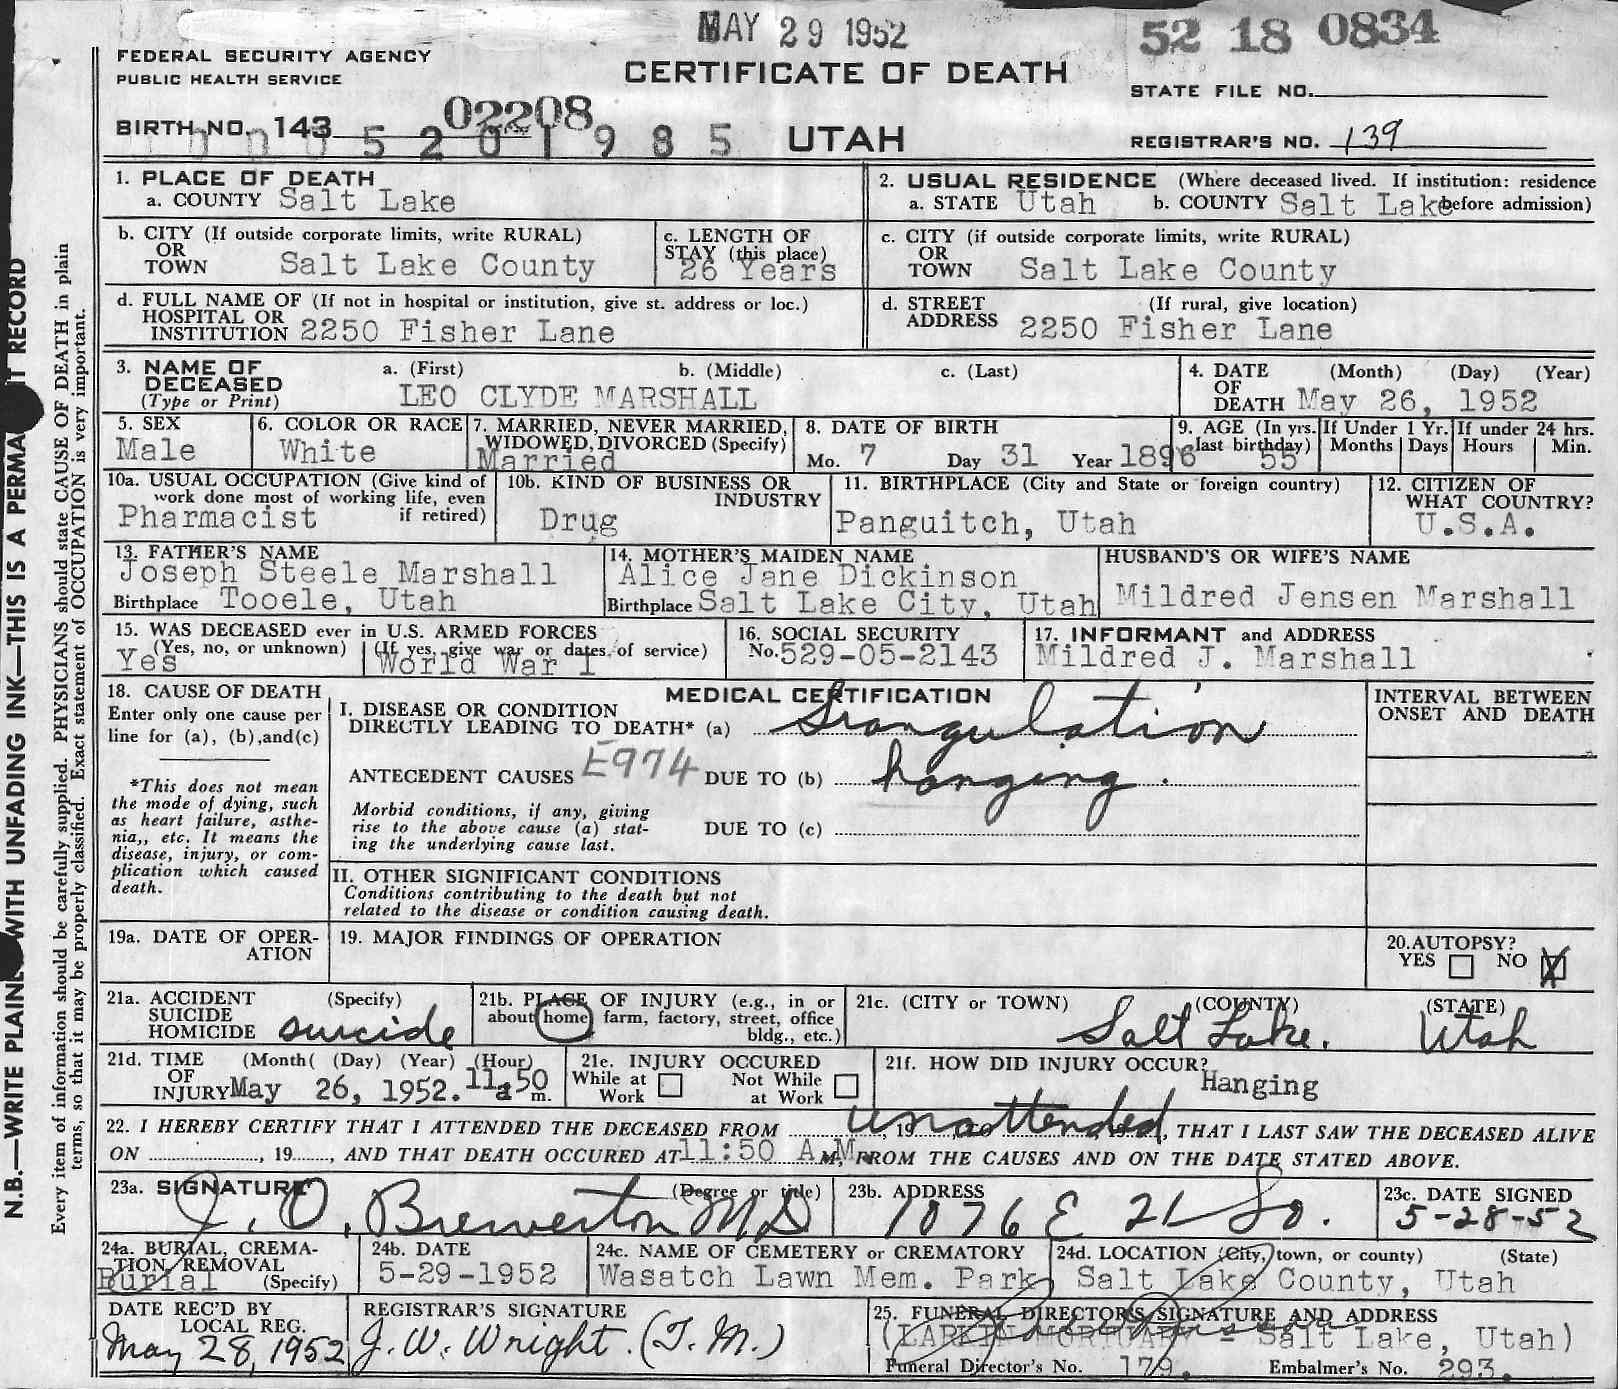 MAY 29 1952
52 18 0834
FEDERAL SECURITY AGENCY
PUBLIC HEALTH SERVICE
CERTIFICATE OF DEATH
STATE FILE NO.
BIRTH NO. 143
02208
5 2 0 1 9 8 5
UTAH
REGISTRAR'S NO. 139
1. PLACE OF DEATH
a. COUNTY Salt Lake
2. USUAL RESIDENCE (Where deceased lived. If institution: residence
a. STATE Utah b. COUNTY Salt Lake before admission)
b. CITY (If outside corporate limits, write RURAL)
OR
TOWN Salt Lake County
c. LENGTH OF
STAY (this place)
26 Years
c. CITY (if outside corporate limits, write RURAL)
OR
TOWN Salt Lake County
d. FULL NAME OF (If not in hospital or institution, give st. address or loc.)
HOSPITAL OR
INSTITUTION 2250 Fisher Lane
d. STREET (If rural, give location)
ADDRESS 2250 Fisher Lane
3. NAME OF a. (First) b. (Middle) c. (Last)
DECEASED
(Type or Print) LEO CLYDE MARSHALL
4. DATE (Month) (Day) (Year)
OF
DEATH May 26, 1952
5. SEX
Male
6. COLOR OR RACE
White
7. MARRIED, NEVER MARRIED,
WIDOWED, DIVORCED (Specify)
Married
8. DATE OF BIRTH
Mo. 7 Day 31 Year 1896
9. AGE (In yrs.
last birthday)
55
If Under 1 Yr.
Months Days
If under 24 hrs.
Hours Min.
10a. USUAL OCCUPATION (Give kind of
work done most of working life, even
if retired)
Pharmacist
10b. KIND OF BUSINESS OR
INDUSTRY
Drug
11. BIRTHPLACE (City and State or foreign country)
Panguitch, Utah
12. CITIZEN OF
WHAT COUNTRY?
U.S.A.
13. FATHER'S NAME
Joseph Steele Marshall
Birthplace Tooele, Utah
14. MOTHER'S MAIDEN NAME
Alice Jane Dickinson
Birthplace Salt Lake City, Utah
HUSBAND'S OR WIFE'S NAME
Mildred Jensen Marshall
15. WAS DECEASED ever in U.S. ARMED FORCES
(Yes, no, or unknown) (If yes, give war or dates of service)
Yes World War I
16. SOCIAL SECURITY
No. 529-05-2143
17. INFORMANT and ADDRESS
Mildred J. Marshall
18. CAUSE OF DEATH
Enter only one cause per
line for (a), (b),and(c)
*This does not mean
the mode of dying, such
as heart failure, asthe-
nia,, etc. It means the
disease, injury, or com-
plication which caused
death.
MEDICAL CERTIFICATION
I. DISEASE OR CONDITION
DIRECTLY LEADING TO DEATH* (a) Strangulation
ANTECEDENT CAUSES E974 DUE TO (b) hanging.
Morbid conditions, if any, giving
rise to the above cause (a) stat-
ing the underlying cause last.
DUE TO (c)
II. OTHER SIGNIFICANT CONDITIONS
Conditions contributing to the death but not
related to the disease or condition causing death.
INTERVAL BETWEEN
ONSET AND DEATH
19a. DATE OF OPER-
ATION
19. MAJOR FINDINGS OF OPERATION
20. AUTOPSY?
YES NO X
21a. ACCIDENT (Specify)
SUICIDE
HOMICIDE suicide
21b. PLACE OF INJURY (e.g., in or
about home, farm, factory, street, office
bldg., etc.)
21c. (CITY or TOWN) (COUNTY) (STATE)
Salt Lake. Utah
21d. TIME (Month( (Day) (Year) (Hour)
OF
INJURY May 26, 1952. 11:50 a m.
21e. INJURY OCCURED
While at Work Not While at Work
21f. HOW DID INJURY OCCUR?
Hanging
22. I HEREBY CERTIFY THAT I ATTENDED THE DECEASED FROM unattended, 19 TO , THAT I LAST SAW THE DECEASED ALIVE
ON , 19 , AND THAT DEATH OCCURED AT 11:50 A.M. M, FROM THE CAUSES AND ON THE DATE STATED ABOVE.
23a. SIGNATURE (Degree or title)
J. O. Brewerton MD
23b. ADDRESS
1076 E 21 So.
23c. DATE SIGNED
5-28-52
24a. BURIAL, CREMA-
TION, REMOVAL
(Specify)
Burial
24b. DATE
5-29-1952
24c. NAME OF CEMETERY or CREMATORY
Wasatch Lawn Mem. Park
24d. LOCATION (City, town, or county) (State)
Salt Lake County, Utah
DATE REC'D BY
LOCAL REG.
May 28, 1952
REGISTRAR'S SIGNATURE
J. W. Wright. (T. M.)
25. FUNERAL DIRECTOR'S SIGNATURE AND ADDRESS
(LARKIN MORTUARY - Salt Lake, Utah)
Funeral Director's No. 179. Embalmer's No. 293.
N.B.—WRITE PLAINLY WITH UNFADING INK—THIS IS A PERMANENT RECORD
Every item of information should be carefully supplied. PHYSICIANS should state CAUSE OF DEATH in plain
terms, so that it may be properly classified. Exact statement of OCCUPATION is very important.